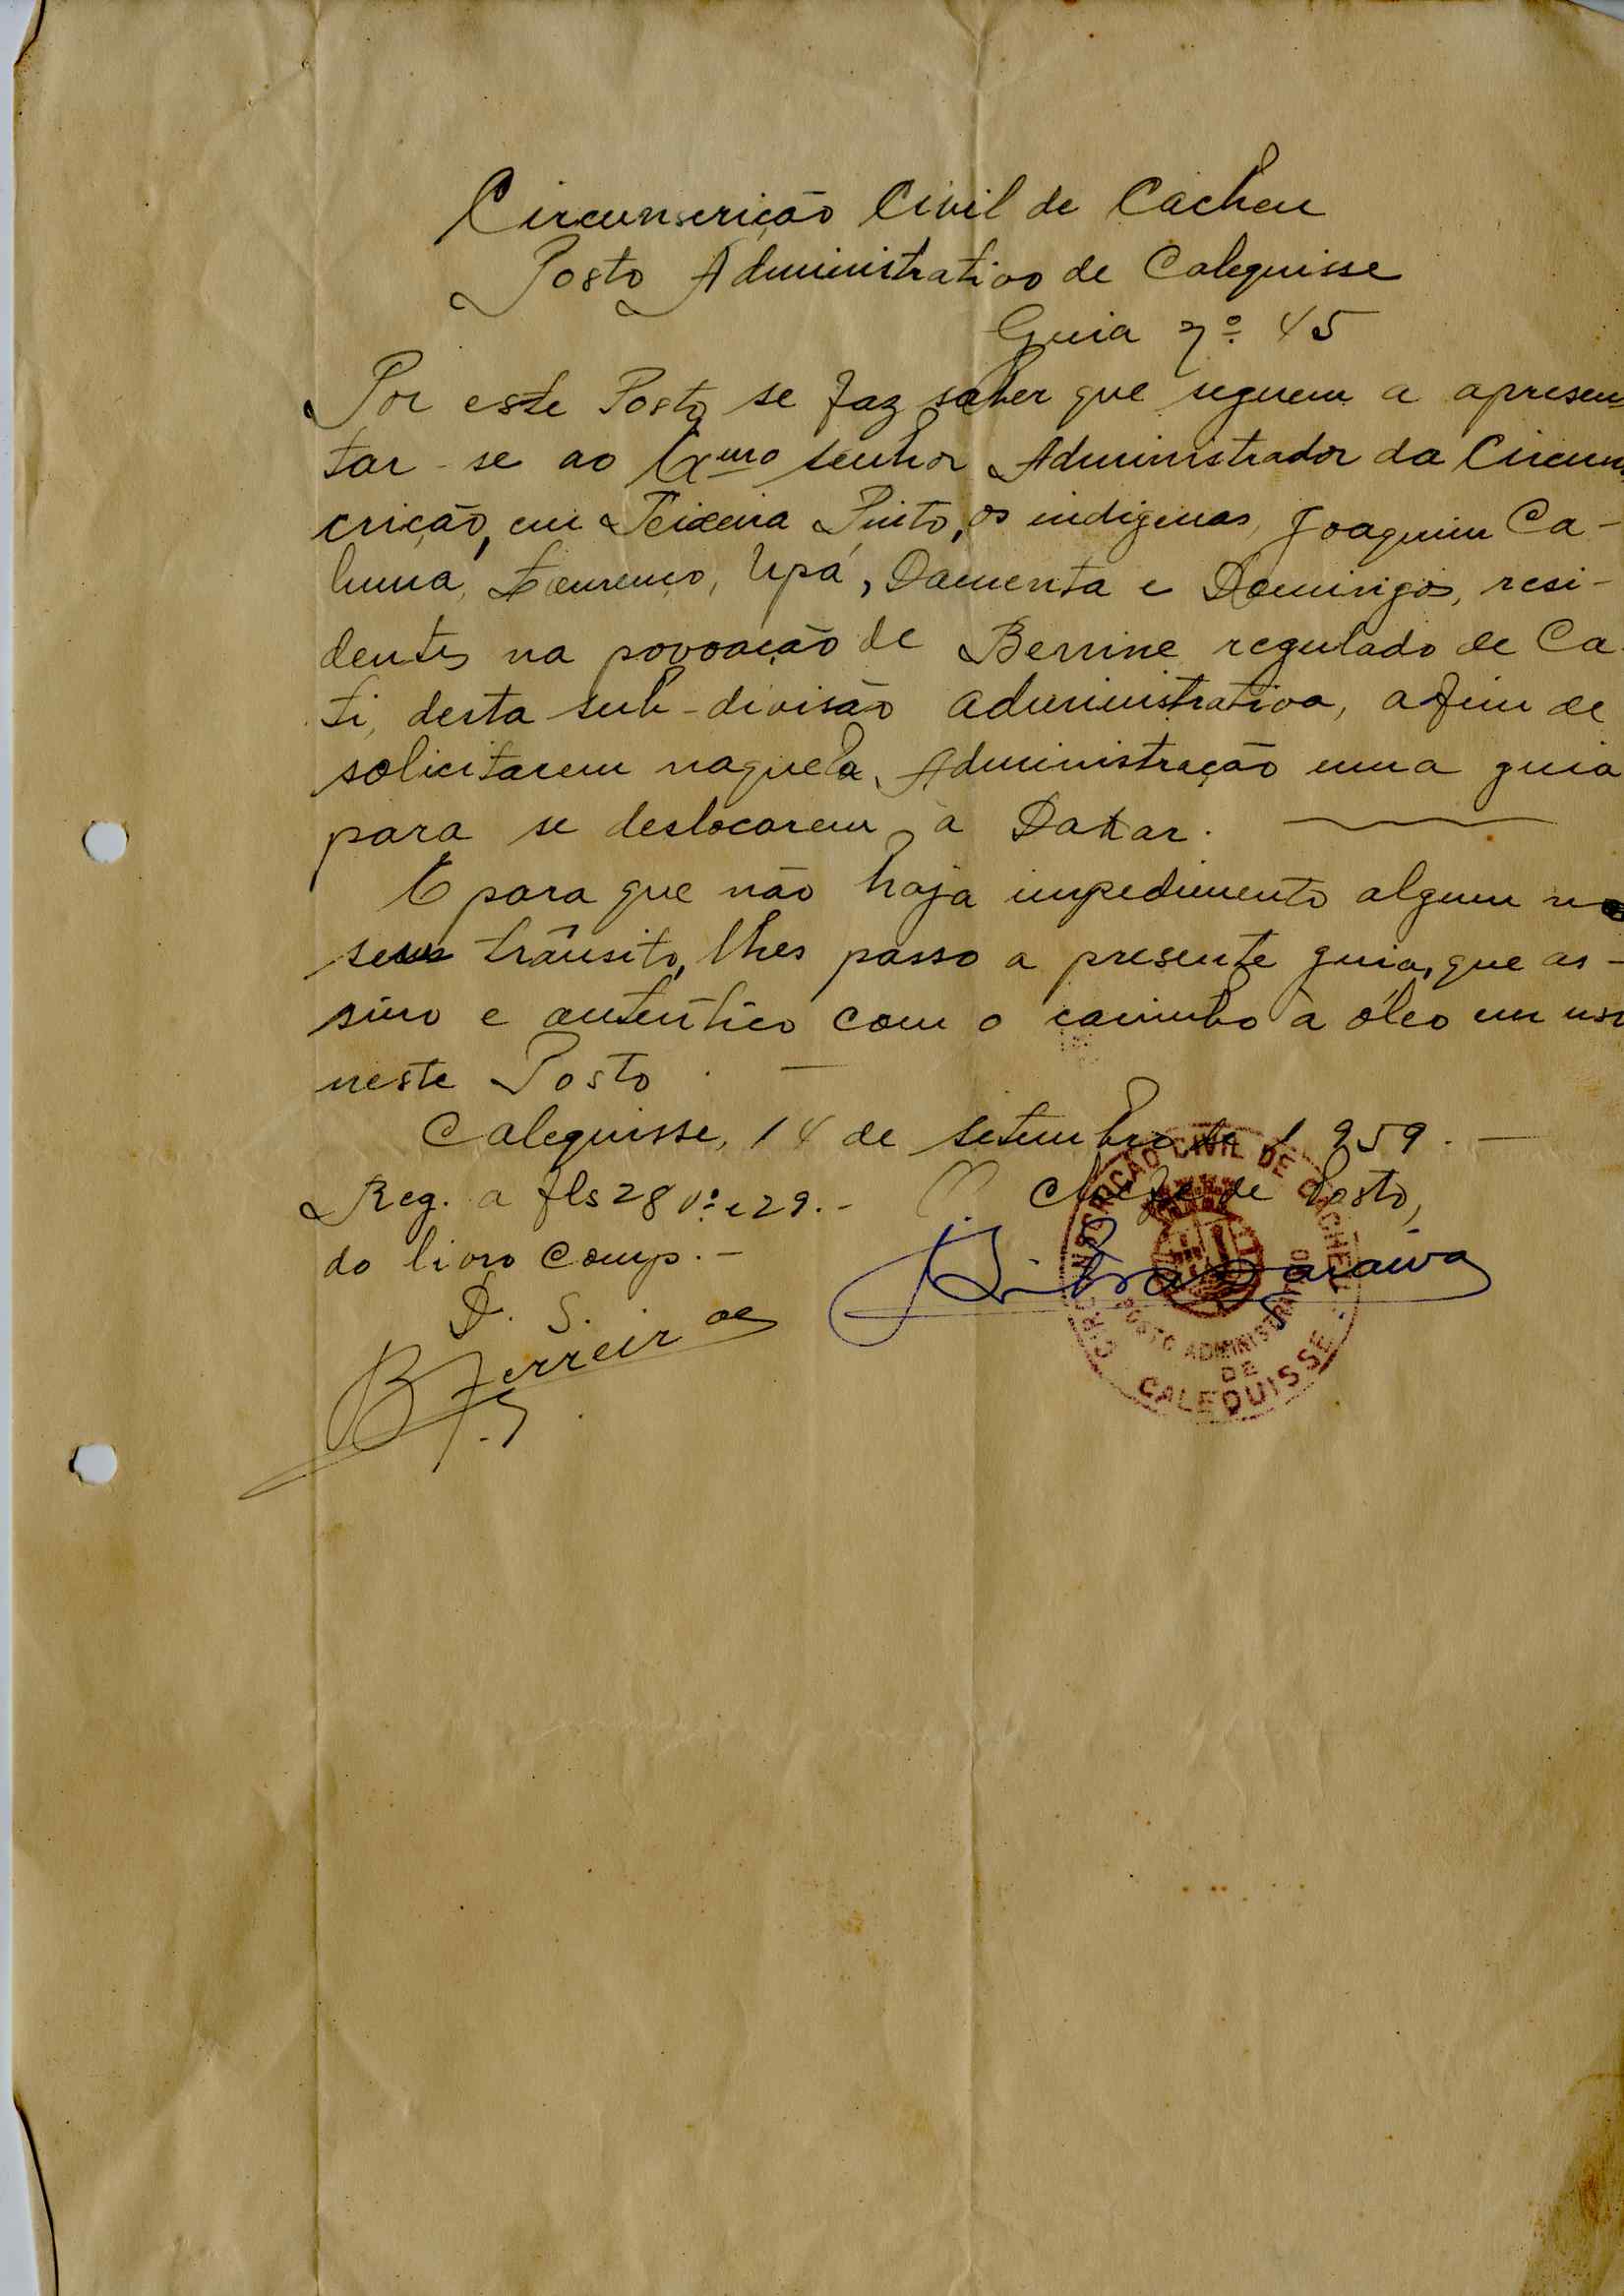 Circunscrição Civil de Cacheu
Posto Administrativo de Calequisse
Guia nº 45
Por este Posto se faz saber que seguem a apresen
tar-se ao Exmo senhor Administrador da Circuns
crição, em Teixeira Pinto, os indigenas, Joaquim Ca-
huma, Lourenço, Upá, Damenta e Domingos, resi-
dentes na povoação de Bernine regulado de Ca
ti, desta sub-divisão administrativa, afim de
solicitarem naquela Administração uma guia
para se deslocarem à Dakar.
E para que não haja impedimento algum no
seu trânsito, lhes passo a presente guia, que as-
sino e autentico com o carimbo a óleo em uso
neste Posto. —
Calequisse, 14 de setembro de 1959. —
Reg. a fls 28 vº e 29. -
O Chefe de Posto,
do livro comp. -
D. S.
B Ferreira
Saraiva
CIRCUNSCRIÇÃO CIVIL DE CACHEU
POSTO ADMINISTRATIVO
DE
CALEQUISSE